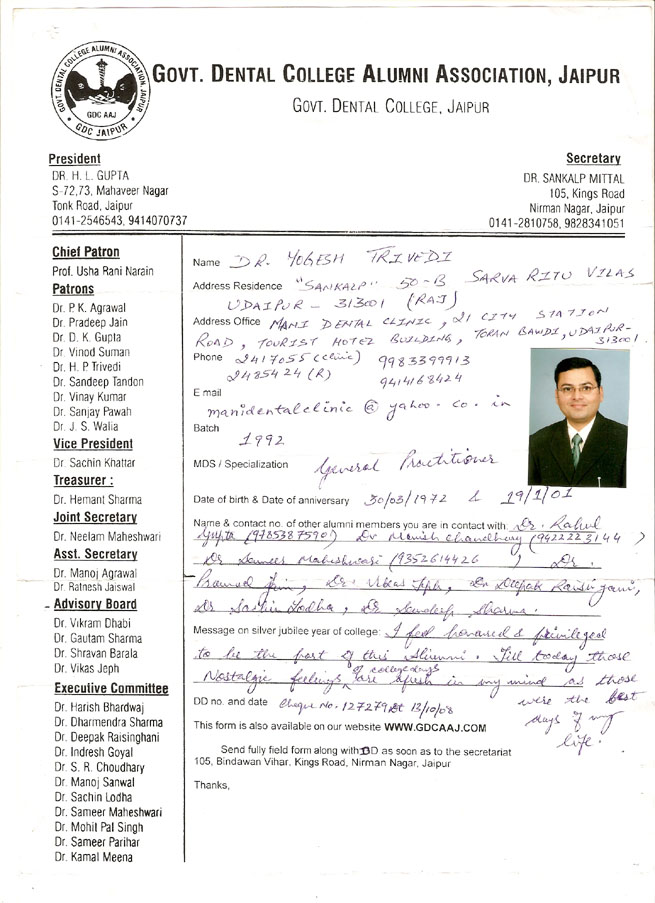 GOVT. DENTAL COLLEGE ALUMNI ASSOCIATION, JAIPUR
GDC AAJ
GDC JAIPUR
GOVT. DENTAL COLLEGE ALUMNI ASSOCIATION, JAIPUR
GOVT. DENTAL COLLEGE, JAIPUR
President
DR. H. L. GUPTA
S-72,73, Mahaveer Nagar
Tonk Road, Jaipur
0141-2546543, 9414070737
Secretary
DR. SANKALP MITTAL
105, Kings Road
Nirman Nagar, Jaipur
0141-2810758, 9828341051
Chief Patron
Prof. Usha Rani Narain
Patrons
Dr. P. K. Agrawal
Dr. Pradeep Jain
Dr. D. K. Gupta
Dr. Vinod Suman
Dr. H. P. Trivedi
Dr. Sandeep Tandon
Dr. Vinay Kumar
Dr. Sanjay Pawah
Dr. J. S. Walia
Vice President
Dr. Sachin Khattar
Treasurer :
Dr. Hemant Sharma
Joint Secretary
Dr. Neelam Maheshwari
Asst. Secretary
Dr. Manoj Agrawal
Dr. Ratnesh Jaiswal
Advisory Board
Dr. Vikram Dhabi
Dr. Gautam Sharma
Dr. Shravan Barala
Dr. Vikas Jeph
Executive Committee
Dr. Harish Bhardwaj
Dr. Dharmendra Sharma
Dr. Deepak Raisinghani
Dr. Indresh Goyal
Dr. S. R. Choudhary
Dr. Manoj Sanwal
Dr. Sachin Lodha
Dr. Sameer Maheshwari
Dr. Mohit Pal Singh
Dr. Sameer Parihar
Dr. Kamal Meena
Name DR. YOGESH TRIVEDI
Address Residence "SANKALP" 50-B SARVA RITU VILAS
UDAIPUR - 313001 (RAJ)
Address Office MANI DENTAL CLINIC, 21 CITY STATION
ROAD, TOURIST HOTEL BUILDING, TORAN BAWDI, UDAIPUR-
313001.
Phone 2417055 (clinic) 9983399913
2485424 (R) 9414168424
E mail
manidentalclinic @ yahoo. co. in
Batch
1992
MDS / Specialization General Practitioner
Date of birth & Date of anniversary 30/03/1972 & 19/1/01
Name & contact no. of other alumni members you are in contact with: Dr. Rahul
Gupta (9785387590) Dr Manish Chandhary (9422223144)
Dr Sameer Maheshwari (9352614426) Dr.
Pramod Jain, Dr. Vikas Jeph, Dr Deepak
Dr Sachin Lodha, Dr Sandeep Sharma.
Message on silver jubilee year of college: I feel honoured & privileged
to be the part of this Alumni. Till today those
Nostalgic feelings of college days are afresh in my mind as those
were the best
days of my
life.
DD no. and date Cheque No. 127279 dt 13/10/08
This form is also available on our website WWW.GDCAAJ.COM
Send fully field form along with DD as soon as to the secretariat
105, Bindawan Vihar, Kings Road, Nirman Nagar, Jaipur
Thanks,